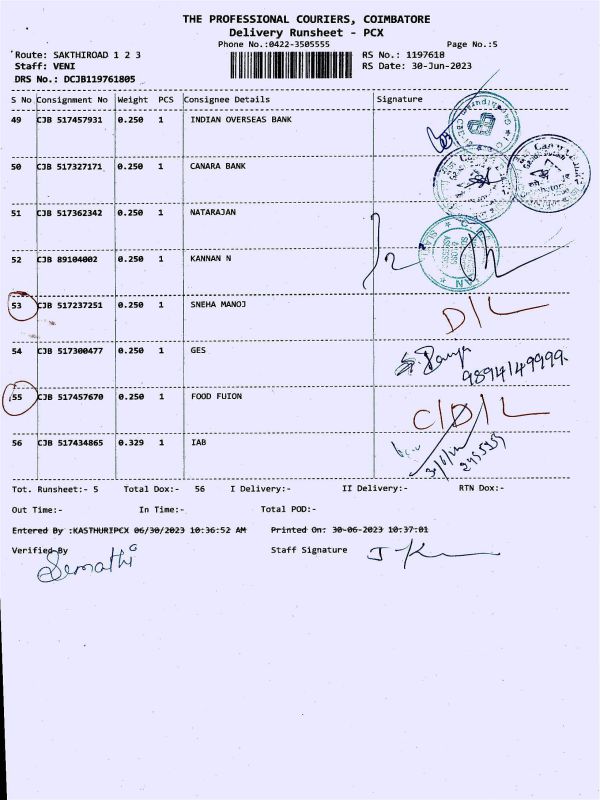 THE PROFESSIONAL COURIERS, COIMBATORE
Delivery Runsheet - PCX
Phone No.:0422-3505555 Page No.:5
Route: SAKTHIROAD 1 2 3 RS No.: 1197618
Staff: VENI RS Date: 30-Jun-2023
DRS No.: DCJB119761805
S No Consignment No Weight PCS Consignee Details Signature
49 CJB 517457931 0.250 1 INDIAN OVERSEAS BANK
50 CJB 517327171 0.250 1 CANARA BANK
51 CJB 517362342 0.250 1 NATARAJAN
52 CJB 89104002 0.250 1 KANNAN N
53 CJB 517237251 0.250 1 SNEHA MANOJ D/L
54 CJB 517300477 0.250 1 GES
9894149999.
55 CJB 517457670 0.250 1 FOOD FUION C/D/L
56 CJB 517434865 0.329 1 IAB
Tot. Runsheet:- 5 Total Dox:- 56 I Delivery:- II Delivery:- RTN Dox:-
Out Time:- In Time:- Total POD:-
Entered By :KASTHURIPCX 06/30/2023 10:36:52 AM Printed On: 30-06-2023 10:37:01
Verified By Staff Signature